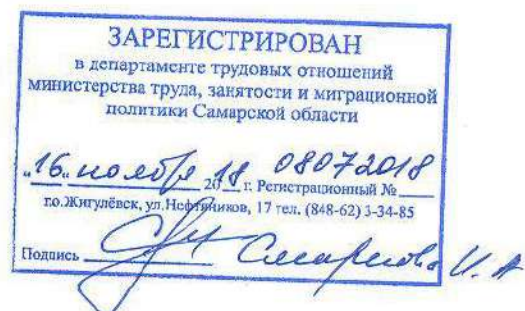 ЗАРЕГИСТРИРОВАН
в департаменте трудовых отношений
министерства труда, занятости и миграционной
политики Самарской области
„16„ ноября 2018 г. Регистрационный № 08072018
г.о.Жигулёвск, ул.Нефтяников, 17 тел. (848-62) 3-34-85
Подпись И. А